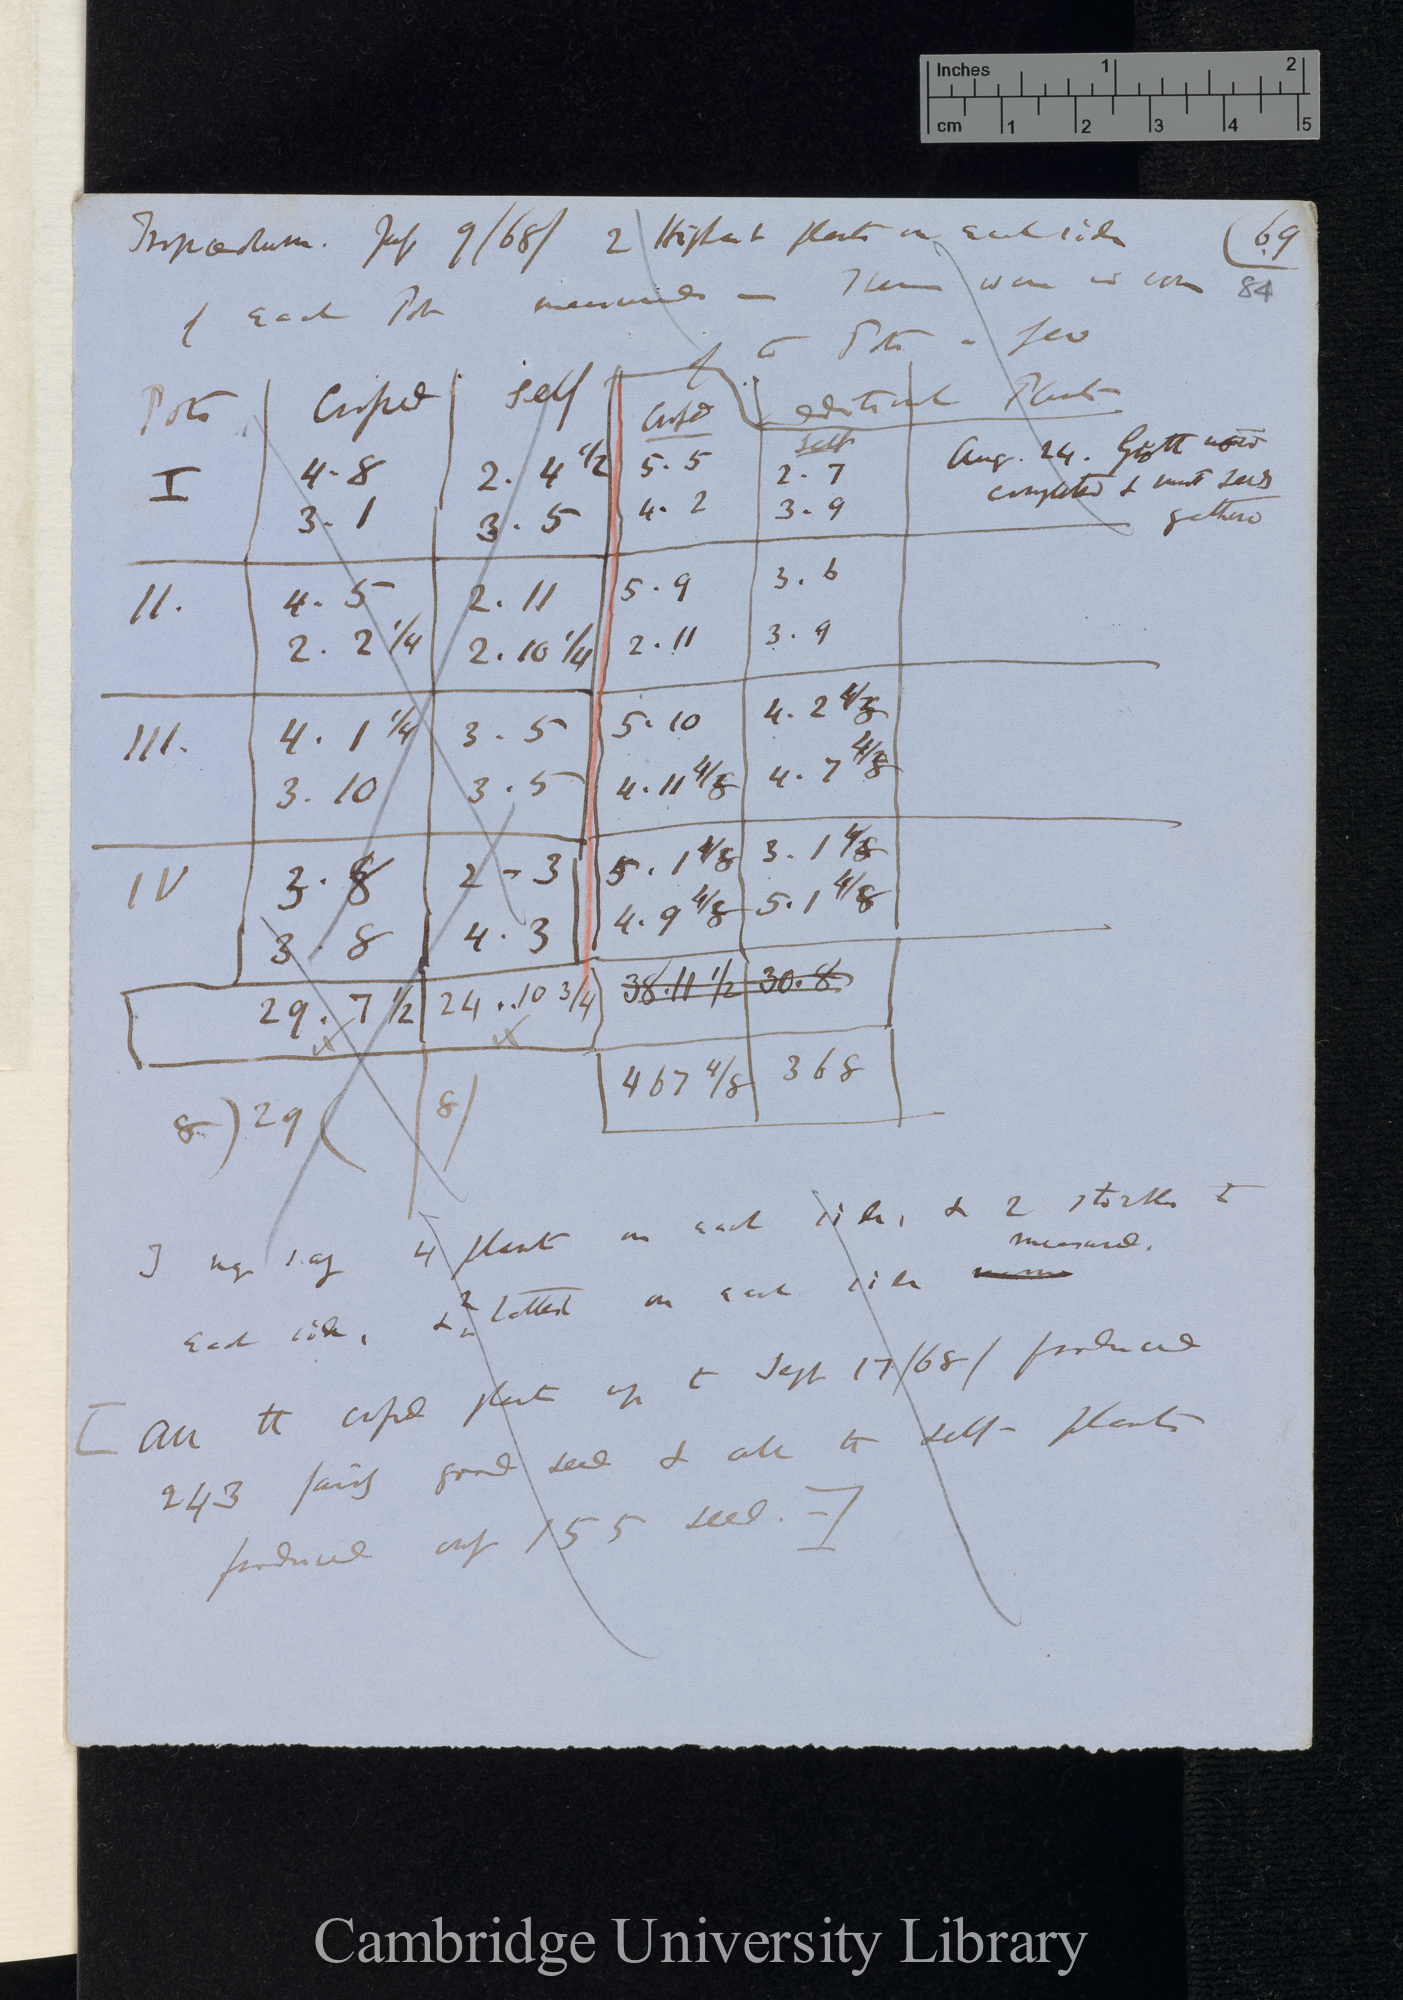 Inches 1 2
cm 1 2 3 4 5
Tropæolum. July 9/68/ 2 Highest plants on each side (69
of each Pot measured — There were in some 84
of the Pots a few
additional Plants
Pots Crossed Self Crossed Self
I 4.8 2.4 1/2 5.5 2.7 Aug. 24. Growth
3.1 3.5 4.2 3.9 completed & most seeds
gathered
II. 4.5 2.11 5.9 3.6
2.2 1/4 2.10 1/4 2.11 3.9
III. 4.1 1/4 3.5 5.10 4.2 4/8
3.10 3.5 4.11 4/8 4.7 4/8
IV 3.8 2-3 5.1 4/8 3.1 4/8
3.8 4.3 4.9 4/8 5.1 4/8
29.7 1/2 24..10 3/4 38.11 1/2 30.8
467 4/8 368
8) 29 ( 8/
I may say 4 plants on each side, & 2 tallest
measured.
each side, & 2 tallest on each side
[All the crossed plants up to Sept 17/68/ produced
243 fairly good seed & all the self-plants
produced only 155 seed.—]
Cambridge University Library